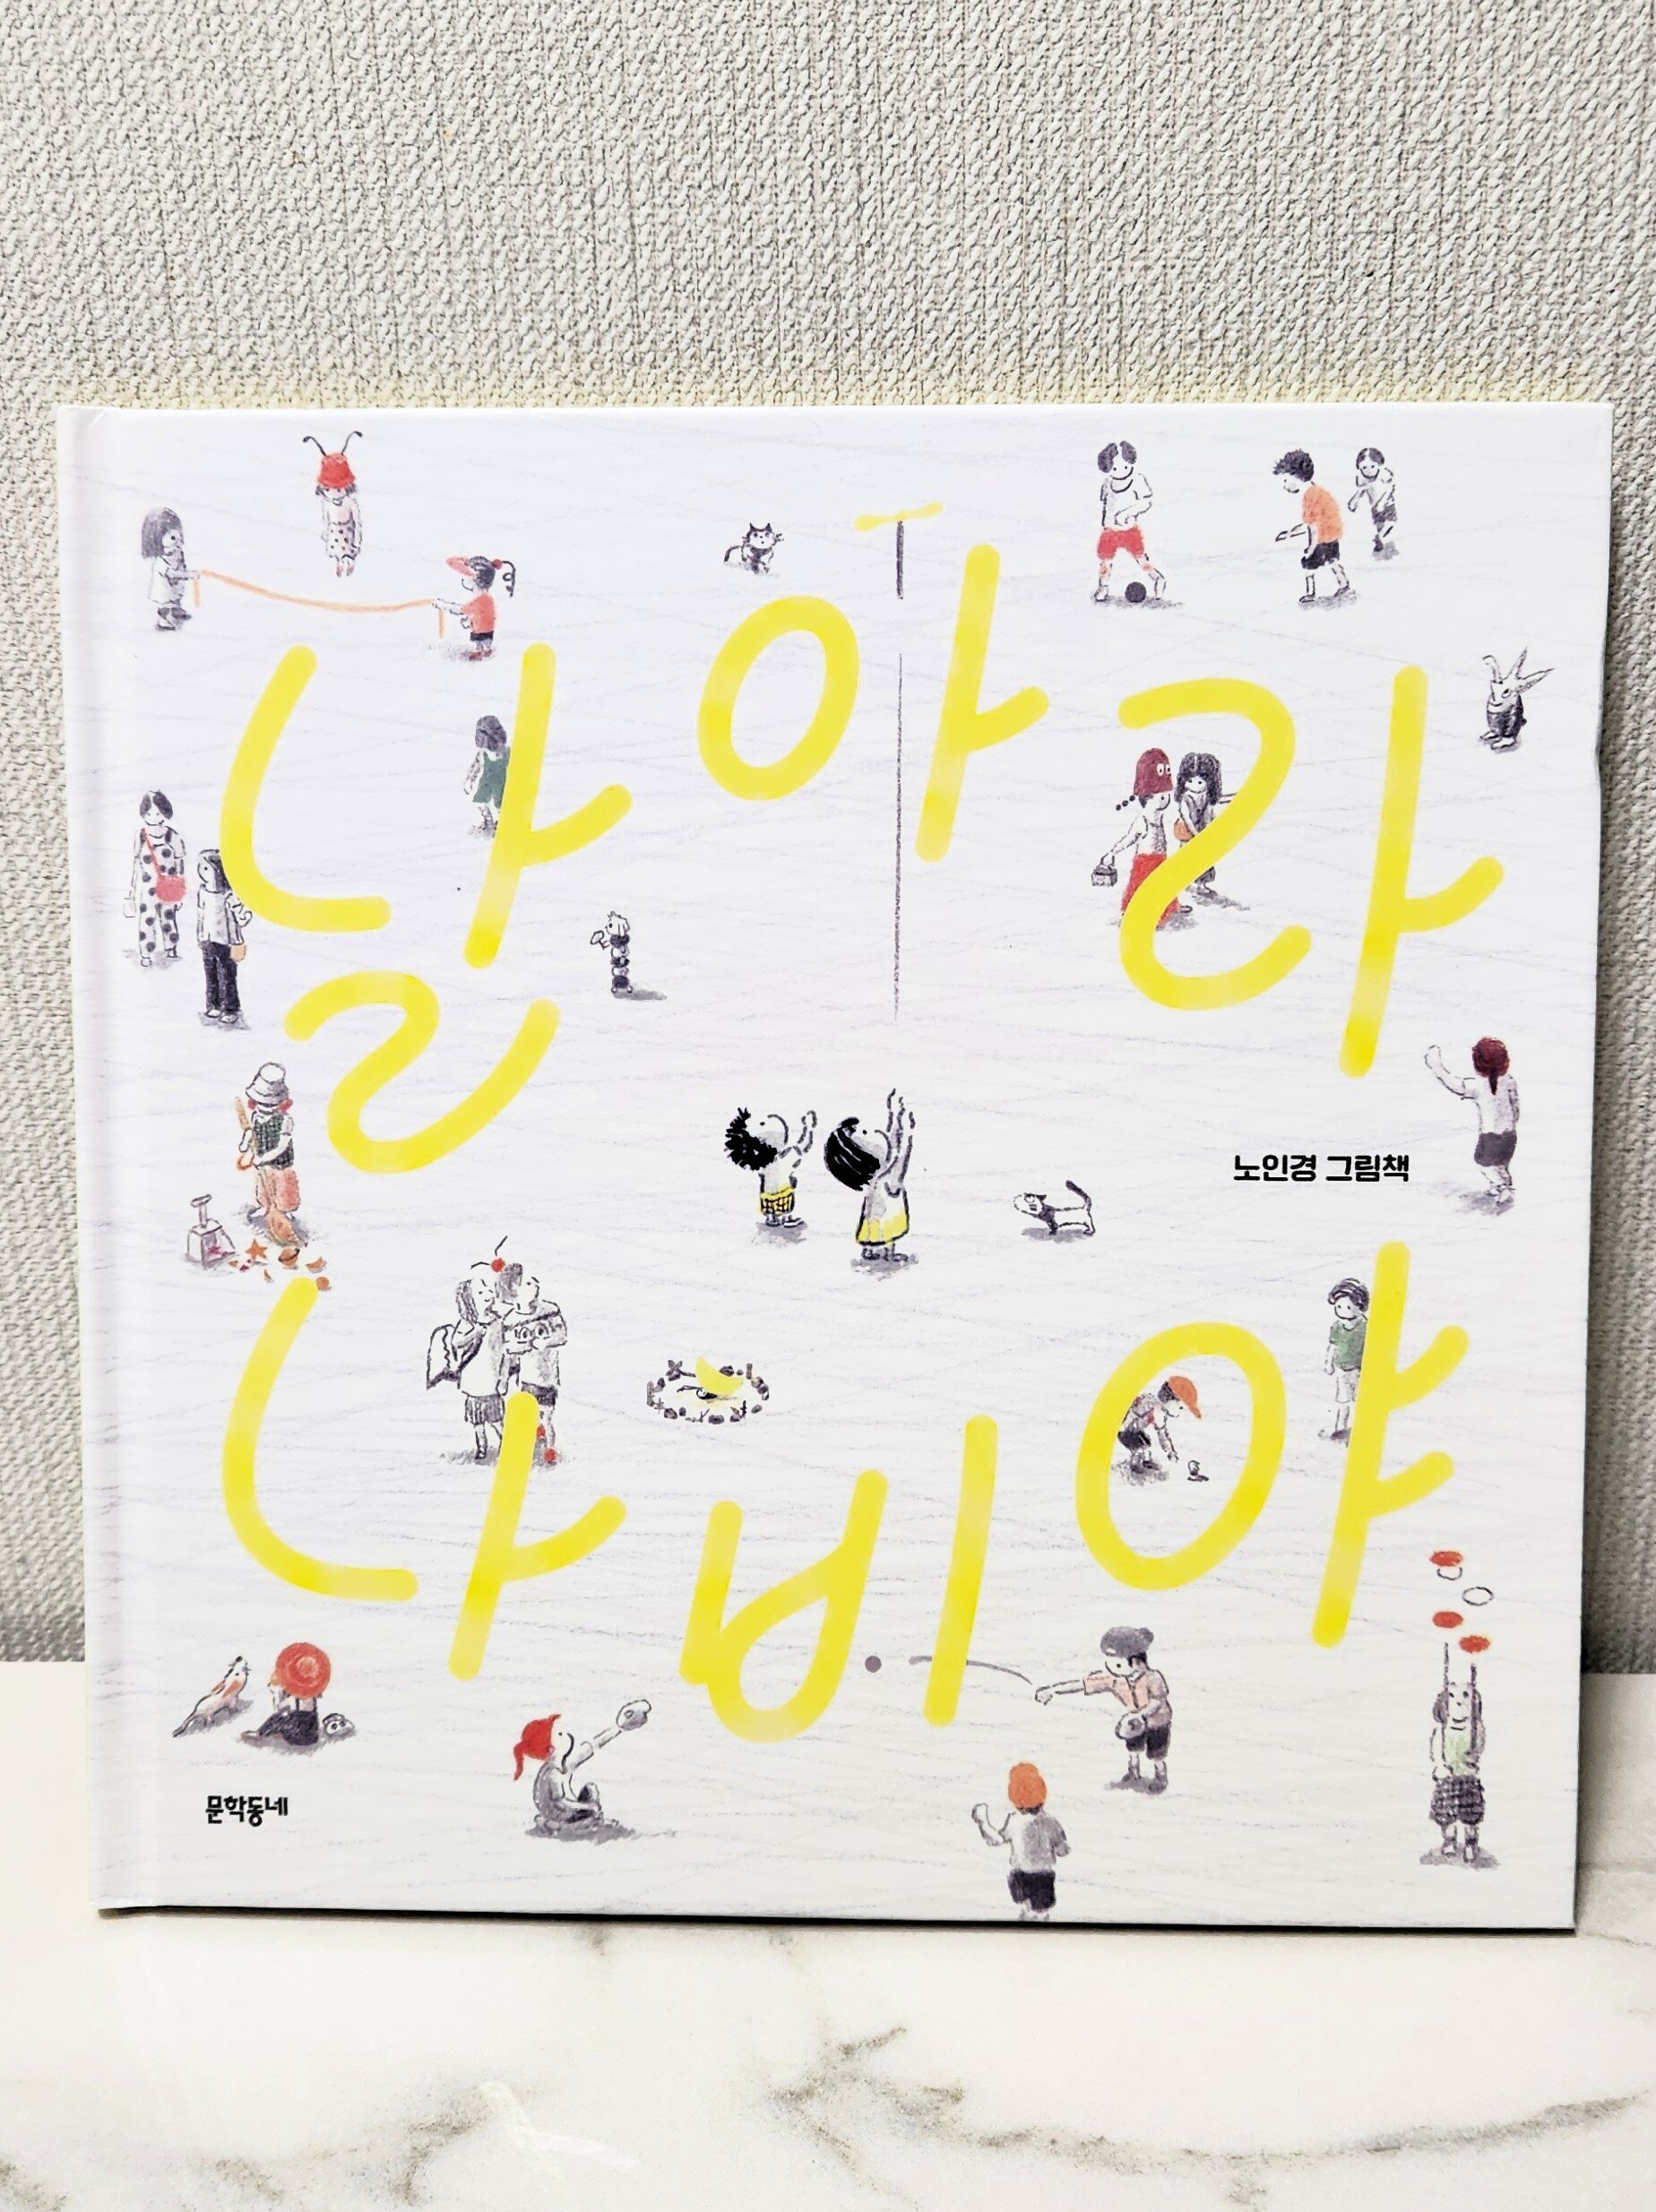 날아라
노인경 그림책
나비야
문학동네